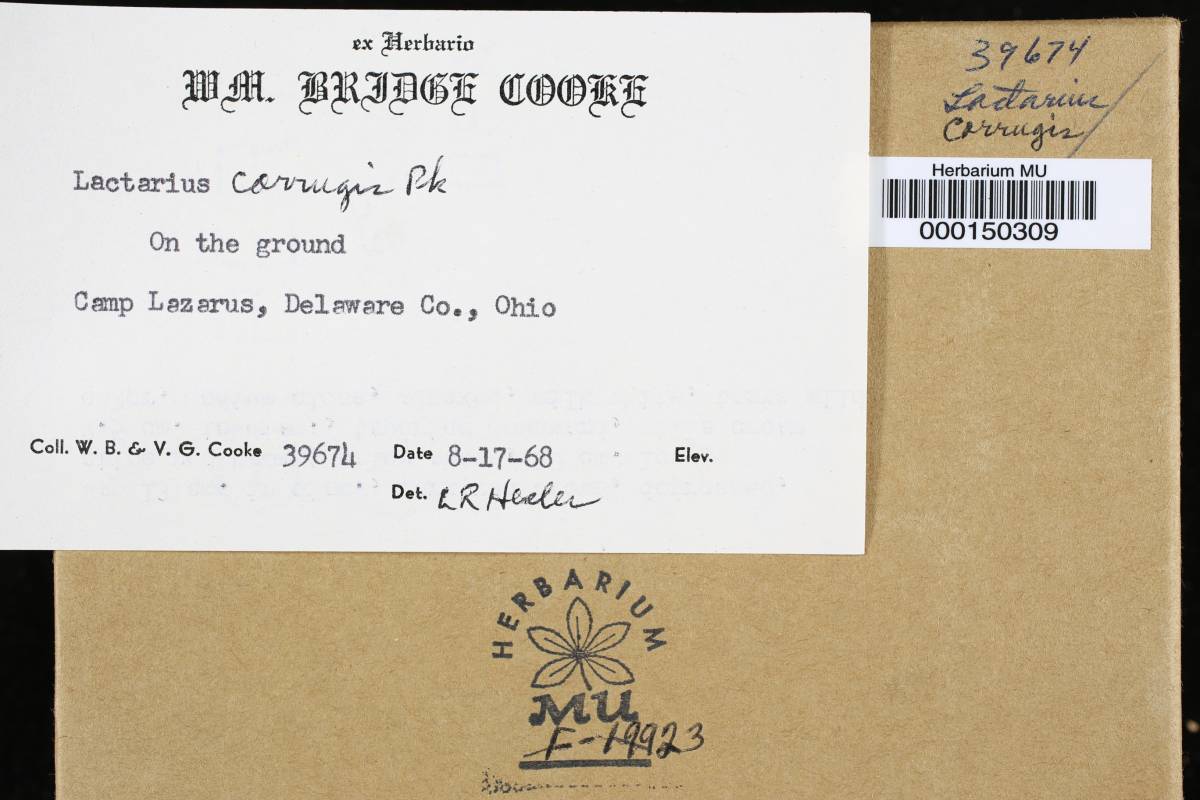 ex Herbario
WM. BRIDGE COOKE
Lactarius corrugis Pk
On the ground
Camp Lazarus, Delaware Co., Ohio
Coll. W. B. & V. G. Cooke 39674 Date 8-17-68 Elev.
Det. LR Hesler
39674
Lactarius
Corrugis
Herbarium MU
000150309
HERBARIUM
MU
F-19923